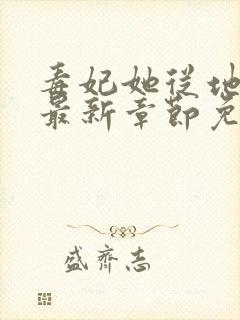 毒妃她从地
最新章節免
盛齊志